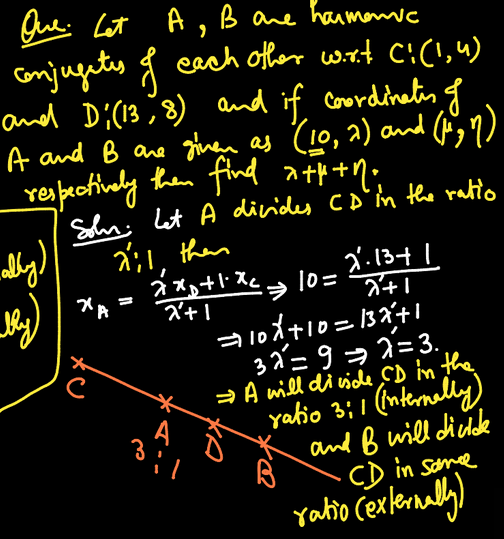 Que: Let A, B are harmonic
conjugates of each other w.r.t C:(1,4)
and D:(13,8) and if coordinates of
A and B are given as (10, λ) and (μ, η)
respectively then find λ+μ+η.
Soln: Let A divides CD in the ratio
λ':1 then
x_A = (λ' x_D + 1· x_C)/(λ'+1) ⇒ 10 = (λ'·13+1)/(λ'+1)
⇒ 10λ'+10 = 13λ'+1
3λ' = 9 ⇒ λ' = 3.
⇒ A will divide CD in the
ratio 3:1 (internally)
and B will divide
CD in same
ratio (externally)
C
A
D
B
3:1